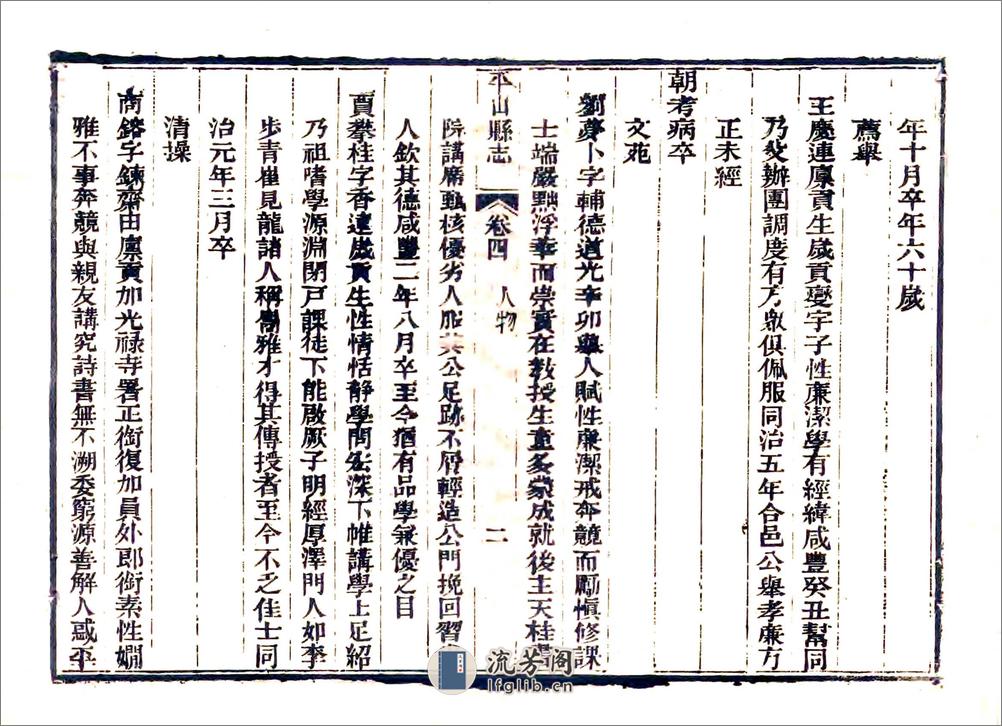 年十月卒年六十歲
薦舉
王慶連廩貢生歲貢變字子性廉潔學有經緯咸豐癸丑幫同
乃父辦團調度有方衆俱佩服同治五年合邑公舉孝廉方
正未經
朝考病卒
文苑
劉夢卜字輔德道光辛卯舉人賦性廉潔戒奔競而勵慎修課
士端嚴黜浮華而崇實在教授生童多蒙成就後主天桂書
院講席甄核優劣人服其公足跡不屑輕造公門挽回習
人欽其德咸豐二年八月卒至今猶有品學兼優之目
平山縣志 卷四 人物 二
賈攀桂字香遠歲貢生性情恬靜學問宏深下帷講學上足紹
乃祖嗜學源淵閉戶課徒下能啟厥子明經厚澤門人如李
步青崔見龍諸人稱雋雅才得其傳授者至今不乏佳士同
治元年三月卒
清操
商鎔字鍊齋由廩貢加光祿寺署正銜復加員外郎銜素性嫺
雅不事奔競與親友講究詩書無不溯委窮源善解人惑平
流芳閣
lfglib.cn